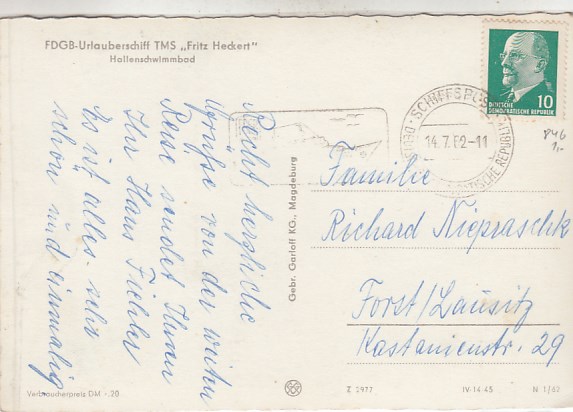 FDGB-Urlauberschiff TMS „Fritz Heckert"
Hallenschwimmbad
Recht herzliche
Grüße von der weiten
Reise sendet Ihnen
Ihr Hans Fiehler
Es ist alles sehr
schön und einmalig
Verbraucherpreis DM -.20
Gebr. Garloff KG., Magdeburg
DEUTSCHE
DEMOKRATISCHE REPUBLIK
10
SCHIFFSPOST
14.7.62-11
846
1,-
Familie
Richard Niepraschk
Forst/Lausitz
Kastanienstr. 29
Z 5977
IV-14-45
N 1/62